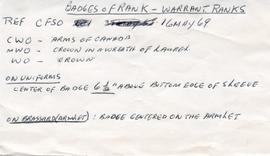 BADGES OF RANK - WARRANT RANKS
REF CFSO 16 MAY 69
CWO - ARMS OF CANADA
MWO - CROWN IN A WREATH OF LAUREL
WO - CROWN
ON UNIFORMS
CENTER OF BADGE 6½" ABOVE BOTTOM EDGE OF SLEEVE
ON BRASSARD (ARMLET) : BADGE CENTERED ON THE ARMLET